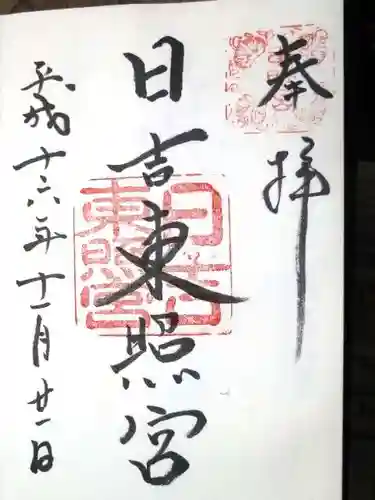 奉拝
日吉東照宮
平成十六年十一月廿一日
日吉東照宮